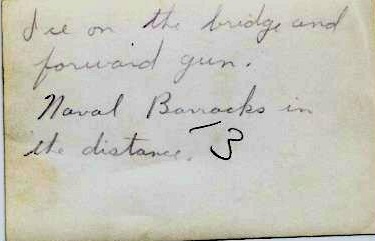 Ice on the bridge and
forward gun.
Naval Barracks in
the distance. 3